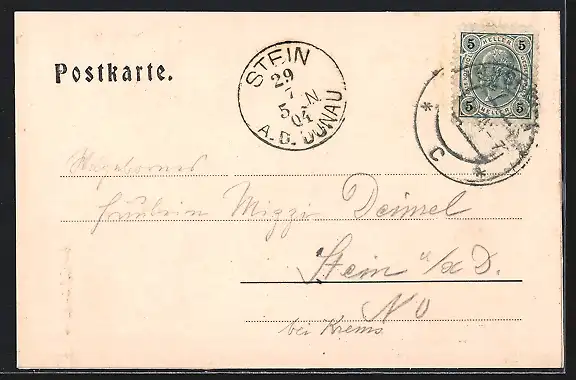 Postkarte.
STEIN
29
7
5 N
04
A.D. DONAU
5 HELLER 5
5 HELLER 5
* C *
Fräulein Mizzi Deimel
Stein a/d D.
N Ö
bei Krems